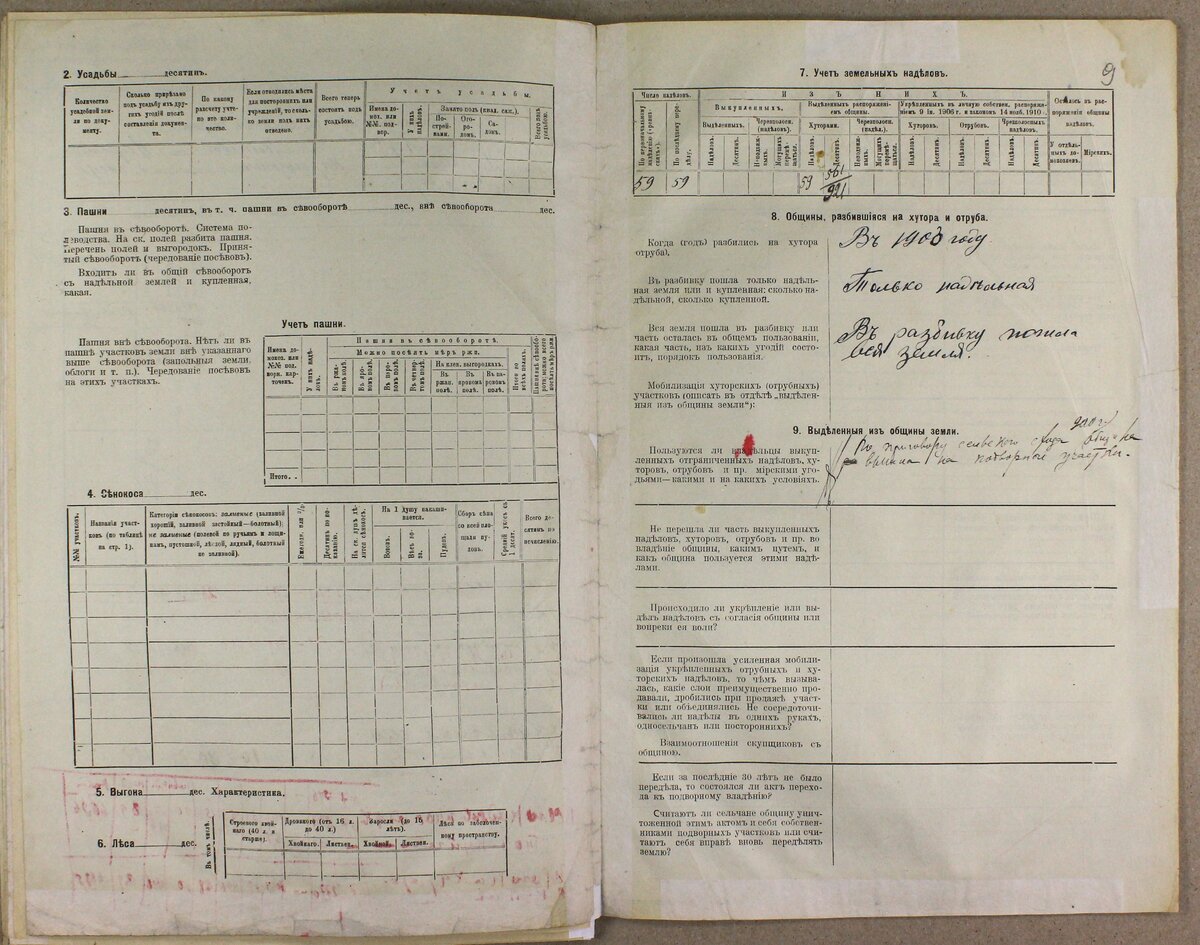 2. Усадьбы десятинъ.
Количество усадебной земли по документу.
Сколько прирѣзано подъ усадьбу изъ другихъ угодій послѣ составленія документа.
По какому разсчету учтено это количество.
Если отводились мѣста для постороннихъ или учрежденій, то сколько земли подъ нихъ отведено.
Всего теперь состоитъ подъ усадьбою.
Учетъ усадьбы.
Имена домохоз. или №№ подвор.
У нихъ надѣловъ.
Занято подъ (квад. саж.).
Постройками.
Огородомъ.
Садомъ.
3. Пашни десятинъ, въ т. ч. пашни въ сѣвооборотѣ дес., внѣ сѣвооборота дес.
Пашня въ сѣвооборотѣ. Система по-
леводства. На ск. полей разбита пашня.
Перечень полей и выгородокъ. Приня-
тый сѣвооборотъ (чередованіе посѣвовъ).
Входитъ ли въ общій сѣвооборотъ
съ надѣльной землей и купленная,
какая.
Учетъ пашни.
Пашня внѣ сѣвооборота. Нѣтъ ли въ
пашнѣ участковъ земли внѣ указаннаго
выше сѣвооборота (запольныя земли,
облоги и т. п.). Чередованіе посѣвовъ
на этихъ участкахъ.
Имена домохоз. или №№ подворн. карточекъ.
У нихъ надѣловъ.
Пашня въ сѣвооборотѣ.
Можно посѣять мѣръ ржи.
Въ ржаномъ полѣ.
Въ яровомъ полѣ.
Въ паровомъ полѣ.
Въ четвертомъ полѣ.
На клин. выгородкахъ.
Въ ржан. полѣ.
Въ яровомъ полѣ.
Въ паровомъ полѣ.
Итого во всѣхъ поляхъ.
Итого. . .
4. Сѣнокоса дес.
№№ участковъ.
Названія участковъ (по таблицѣ на стр. 1).
Категоріи сѣнокосовъ: заливные (заливной хорошій, заливной застойный—болотный); не заливные (полевой по ручьямъ и лощинамъ, пустошной, лѣсной, лядный, болотный не заливной).
На 1 душу накашивается.
Возовъ.
Вѣсъ воза.
Пудовъ.
Сборъ сѣна со всей площади пудовъ.
Средній укосъ съ 1 десят.
Всего десятинъ по исчисленію.
5. Выгона дес. Характеристика.
6. Лѣса дес.
Въ томъ числѣ.
Строевого хвойнаго (40 л. и старше).
Дровяного (отъ 16 л. до 40 л.)
Хвойнаго.
Листвен.
Заросли (до 15 лѣтъ).
Хвойной.
Листвен.
Лѣса по заболоченному пространству.
9
7. Учетъ земельныхъ надѣловъ.
Число надѣловъ.
По послѣднему передѣлу.
ИЗЪ НИХЪ.
Выкупленныхъ.
Выдѣленныхъ.
Надѣловъ.
Десятин.
Черезполосн. (надѣловъ).
Выдѣленныхъ распоряженіемъ общины.
Хуторами.
Надѣловъ.
Десятин.
Черезполосн. (надѣл.).
Укрѣпленныхъ въ личную собствен. распоряженіемъ 9 ін. 1906 г. и закономъ 14 іюн. 1910 г.
Хуторовъ.
Надѣловъ.
Десятин.
Отрубовъ.
Надѣловъ.
Десятин.
Черезполосныхъ надѣловъ.
Надѣловъ.
Десятин.
Осталось въ распоряженіи общины надѣловъ.
У отдѣльныхъ домохозяевъ.
Мірскихъ.
59 59 59 561
921
8. Общины, разбившіяся на хутора и отруба.
Когда (годъ) разбились на хутора
отруба).
Въ 1903 году
Въ разбивку пошла только надѣль-
ная земля или и купленная: сколько на-
дѣльной, сколько купленной.
Только надѣльная
Вся земля пошла въ разбивку или
часть осталась въ общемъ пользованіи,
какая часть, изъ какихъ угодій состо-
итъ, порядокъ пользованія.
Въ разбивку пошла
вся земля.
Мобилизація хуторскихъ (отрубныхъ)
участковъ (описать въ отдѣлѣ „выдѣлен-
ныя изъ общины земли“):
9. Выдѣленныя изъ общины земли.
Пользуются ли владѣльцы выкуп-
ленныхъ отграниченныхъ надѣловъ, ху-
торовъ, отрубовъ и пр. мірскими уго-
дьями—какими и на какихъ условіяхъ.
По приговору сельского схода община
на подворные участки.
Не перешла ли часть выкупленныхъ
надѣловъ, хуторовъ, отрубовъ и пр. во
владѣніе общины, какимъ путемъ, и
какъ община пользуется этими надѣ-
лами.
Происходило ли укрѣпленіе или вы-
дѣлъ надѣловъ съ согласія общины или
вопреки ея воли?
Если произошла усиленная мобили-
зація укрѣпленныхъ отрубныхъ и ху-
торскихъ надѣловъ, то чѣмъ вызыва-
лась, какіе слои преимущественно про-
давали, дробились при продажѣ участ-
ки или объединялись. Не сосредоточи-
вались ли надѣлы въ однихъ рукахъ,
односельчан или постороннихъ?
Взаимоотношенія скупщиковъ съ
общиною.
Если за послѣдніе 30 лѣтъ не было
передѣла, то состоялся ли актъ перехо-
да къ подворному владѣнію?
Считаютъ ли сельчане общину уни-
чтоженной этимъ актомъ и себя собствен-
никами подворныхъ участковъ или счи-
таютъ себя вправѣ вновь передѣлять
землю?